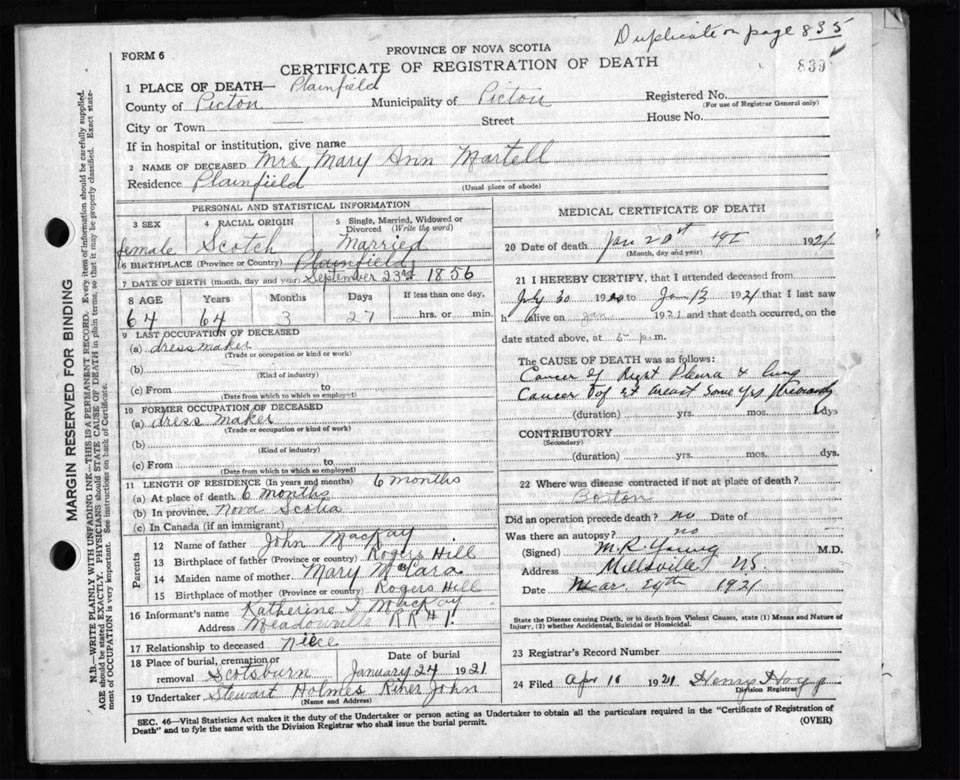 Duplicate on page 835
FORM 6
PROVINCE OF NOVA SCOTIA
CERTIFICATE OF REGISTRATION OF DEATH
839
1 PLACE OF DEATH— Plainfield
County of Picton Municipality of Picton Registered No.
(For use of Registrar General only)
City or Town Street House No.
If in hospital or institution, give name
2 NAME OF DECEASED Mrs Mary Ann Martell
Residence Plainfield
(Usual place of abode)
PERSONAL AND STATISTICAL INFORMATION
3 SEX 4 RACIAL ORIGIN 5 Single, Married, Widowed or Divorced (Write the word)
female Scotch Married
6 BIRTHPLACE (Province or Country) Plainfield
7 DATE OF BIRTH (month, day and year) September 23rd 1856
8 AGE Years Months Days If less than one day,
64 64 3 27 hrs. or min.
9 LAST OCCUPATION OF DECEASED
(a) dressmaker
(Trade or occupation or kind or work)
(b)
(Kind of industry)
(c) From to
(Date from which to which so employed)
10 FORMER OCCUPATION OF DECEASED
(a) dress maker
(Trade or occupation or kind of work)
(b)
(Kind of industry)
(c) From to
(Date from which to which so employed)
11 LENGTH OF RESIDENCE (In years and months) 6 months
(a) At place of death 6 months
(b) In province, Nova Scotia
(c) In Canada (if an immigrant)
Parents
12 Name of father John MacKay
13 Birthplace of father (Province or country) Rogers Hill
14 Maiden name of mother. Mary McLara
15 Birthplace of mother (Province or Country) Rogers Hill
16 Informant's name Katherine I MacKay
Address Meadowville RR #1
17 Relationship to deceased Niece
18 Place of burial, cremation or removal Scotsburn Date of burial January 24 1921
19 Undertaker Stewart Holmes River John
(Name and Address)
MEDICAL CERTIFICATE OF DEATH
20 Date of death Jan 20st 1921
(Month, day and year)
21 I HEREBY CERTIFY, that I attended deceased from
July 30 1920 to Jan 13 1921 that I last saw
h alive on Jan 1921 and that death occurred, on the
date stated above, at 5 p.m.
The CAUSE OF DEATH was as follows:
Cancer of Right Pleura & lung
Cancer of rt breast some yrs previously
(duration) yrs. mos. dys
CONTRIBUTORY
(Secondary)
(duration) yrs. mos. dys.
22 Where was disease contracted if not at place of death?
Boston
Did an operation precede death? no Date of
Was there an autopsy? no
(Signed) M.R. Young M.D.
Address Millsville NS
Date Mar. 29th 1921
State the Disease causing Death, or in death from Violent Causes, state (1) Means and Nature of Injury, (2) whether Accidental, Suicidal or Homicidal.
23 Registrar's Record Number
24 Filed Apr 16 1921 Henry
Division Registrar
SEC. 46—Vital Statistics Act makes it the duty of the Undertaker or person acting as Undertaker to obtain all the particulars required in the "Certificate of Registration of
Death" and to fyle the same with the Division Registrar who shall issue the burial permit. (OVER)
MARGIN RESERVED FOR BINDING
N.B.—WRITE PLAINLY WITH UNFADING INK—THIS IS A PERMANENT RECORD. Every item of information should be carefully supplied.
AGE should be stated EXACTLY. PHYSICIANS should STATE CAUSE OF DEATH in plain terms, so that it may be properly classified. Exact state-
ment of OCCUPATION is very important. See instructions on back of Certificate.